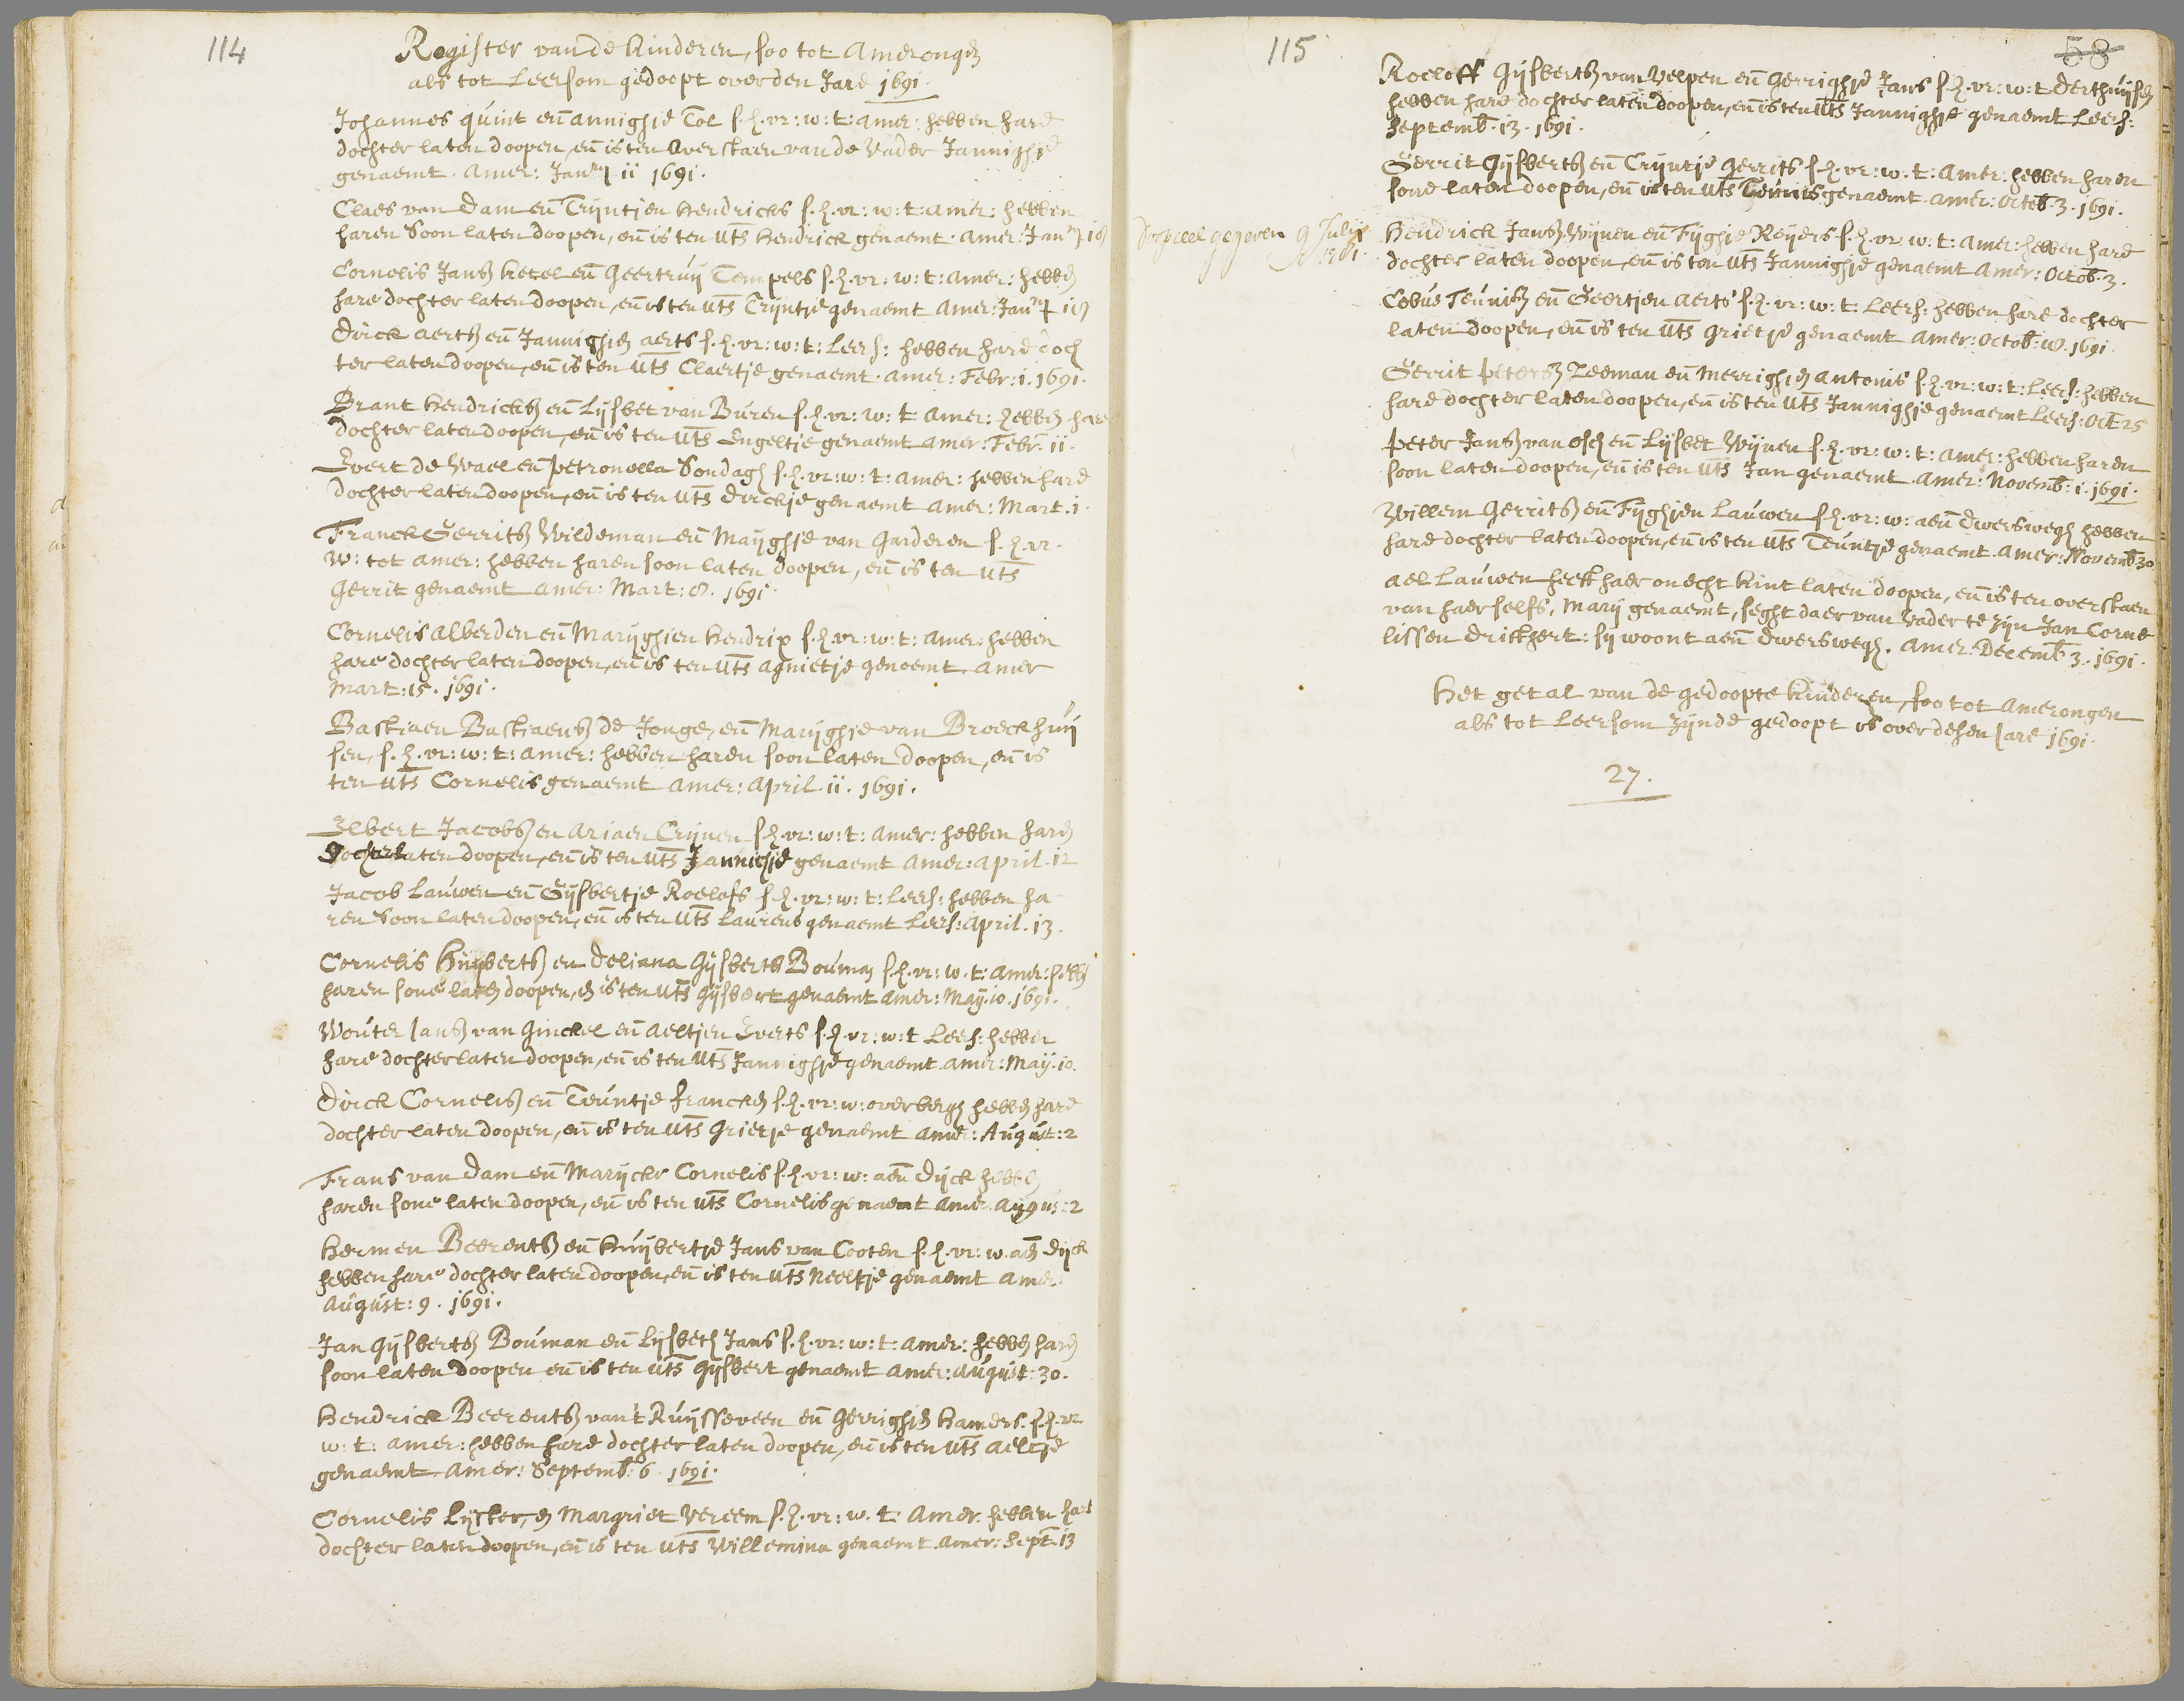 114
Register van de kinderen, soo tot Amerongen
als tot Leersom gedoopt over den Jare 1691.
Johannes quint eñ annighje Tol s.h.vr: w: t: amer: hebben hare
dochter laten doopen, eñ is ten overstaen van de Vader Jannighje
genaemt. Amer: Janry ii 1691.
Claes van Dam eñ Trijntjen Hendricks s.h.vr: w: t: amer: hebben
haren Soon laten doopen, eñ is ten uts Hendrick genaemt. Amer: Janry
Cornelis Jansz Ketel eñ Geertruy Tempels s.h.vr: w: t: amer: hebben
hare dochter laten doopen, eñ is ten uts Trijntje genaemt Amer: Janry
Dirck aertsz eñ Jannighjen aerts s.h.vr: w: t: Leers: hebben hare doch
ter laten doopen, eñ is ten uts Claertje genaemt. Amer: Febr: 1. 1691.
Brant Hendricksz eñ Lysbet van Buren s.h.vr: w: t: Amer: hebben hare
dochter laten doopen, eñ is ten uts Engeltje genaemt Amer: Febr: 11.
Evert de Wael eñ petronella Sondagh s.h.vr: w: t: amer: hebben hare
dochter laten doopen, eñ is ten uts Dirckje genaemt Amer: Mart. 1.
Franck Gerritsz Wildeman eñ Mayghje van Garderen s.h.vr.
w: tot amer: hebben haren soon laten doopen, eñ is ten uts
Gerrit genaemt Amer: Mart: 8. 1691.
Cornelis alberden eñ Maryghien Hendrix s.h.vr: w: t: amer: hebben
hare dochter laten doopen, eñ is ten uts Agnietje genoemt Amer
Mart: 15. 1691.
Bastiaen Bastiaensz de Jonge, eñ Maryghje van Broeckhuy
sen, s.h.vr: w: t: amer: hebben haren soon laten doopen, eñ is
ten uts Cornelis genaemt Amer: April. ii. 1691.
Elbert Jacobsz en Ariaen Crijnen s.h.vr: w: t: amer: hebben haren
Dochter laten doopen, eñ is ten uts Jannichje genaemt Amer: april. 12
Jacob Lauwen eñ Gysbertje Roelofs s.h.vr: w: t: Leers: hebben ha
ren Soon laten doopen, eñ is ten uts Laurens genaemt Leers: April. 13.
Cornelis Huybertsz en Deliana Gysberts Bouman s.h.vr: w: t: amer: hebben
haren sone laten doopen, en is ten uts Gysbert genaemt Amer: May. 10. 1691.
Wouter Jansz van Ginckel eñ Aeltjen Everts s.h.vr: w: t Leers: hebben
hare dochter laten doopen, eñ is ten uts Jannighje genaemt. Amer: May. 10.
Dirck Cornelisz eñ Teuntje francken s.h.vr: w: overbergh hebben hare
dochter laten doopen, eñ is ten uts Grietje genaemt Amer: August: 2
Frans van Dam eñ Maryckr Cornelis s.h.vr: w: aen Dyck hebben
haren sone laten doopen, eñ is ten uts Cornelis genaemt Amer. Augus: 2
Hermen Beerentsz eñ Huybertje Jans van Cooten s.h.vr: w. aen Dyck
hebben hare dochter laten doopen, eñ is ten uts Neeltje genaemt Amer:
August: 9. 1691.
Jan Gysbertsz Bouman eñ Lysbeth Jans s.h.vr: w: t: amer: hebben haren
soon laten doopen eñ is ten uts Gysbert genaemt Amer: August: 30.
Hendrick Beerentsz van't Ruyssveen eñ Gerrighjen Hamers. s.h.vr
w: t: amer: hebben hare dochter laten doopen, eñ is ten uts Aeltje
genaemt Amer: Septemb: 6 1691.
Cornelis Lyster, en Margriet Vereem s.h.vr: w. t: Amer. hebben hare
dochter laten doopen, eñ is ten uts Willemina genaemt. Amer: Sept. 13
115
58
Roeloff Gysbertsz van Velpen eñ Gerrighje Jans s.h.vr: w: t Derthuysen
hebben hare dochter laten doopen, eñ is ten uts Jannighje genaemt Leers:
Septemb. 13. 1691.
Gerrit Gysbertsz eñ Trijntje Gerrits s.h.vr: w: t: Amer: hebben haren
sone laten doopen, eñ is ten uts Teunis genaemt. Amer: Octob. 3. 1691.
Doopceel gegeven 9 Julij
1761.
Hendrick Jansz. Wijnen eñ Fyghje Reyers s.h.vr: w: t: Amer: hebben hare
dochter laten doopen, eñ is ten uts Jannighje genaemt Amer: Octob. 3.
Cobus Teunisz eñ Geertjen Aerts s.h.vr: w: t: Leers: hebben hare dochter
laten doopen, eñ is ten uts Grietje genaemt Amer: Octob: 1691.
Gerrit petersz Zeeman eñ Merrighjen Antonis s.h.vr: w: t: Leers: hebben
hare dochter laten doopen, eñ is ten uts Jannighje genaemt Leers: Oct 25
Peter Jansz van Osch eñ Lysbet Wijnen s.h.vr: w: t: Amer: hebben haren
soon laten doopen, eñ is ten uts Jan genaemt. Amer: Novemb: 1. 1691.
Willem Gerritsz eñ Fyghjen Lauwen s.h.vr: w: aen Dwerswegh hebben
hare dochter laten doopen, eñ is ten uts Teuntje genaemt. Amer: Novemb 30
Ael Lauwen heeft haer onecht kint laten doopen, eñ is ten overstaen
van haer selfs, Mary genaemt, seght daer van Vader te zyn Jan Corne
lissen Drickhert: sy woont aen Dwerswegh. Amer: Decemb 3. 1691.
Het getal van de gedoopte kinderen, soo tot Amerongen
als tot Leersom zynde gedoopt is over desen Jare 1691.
27.